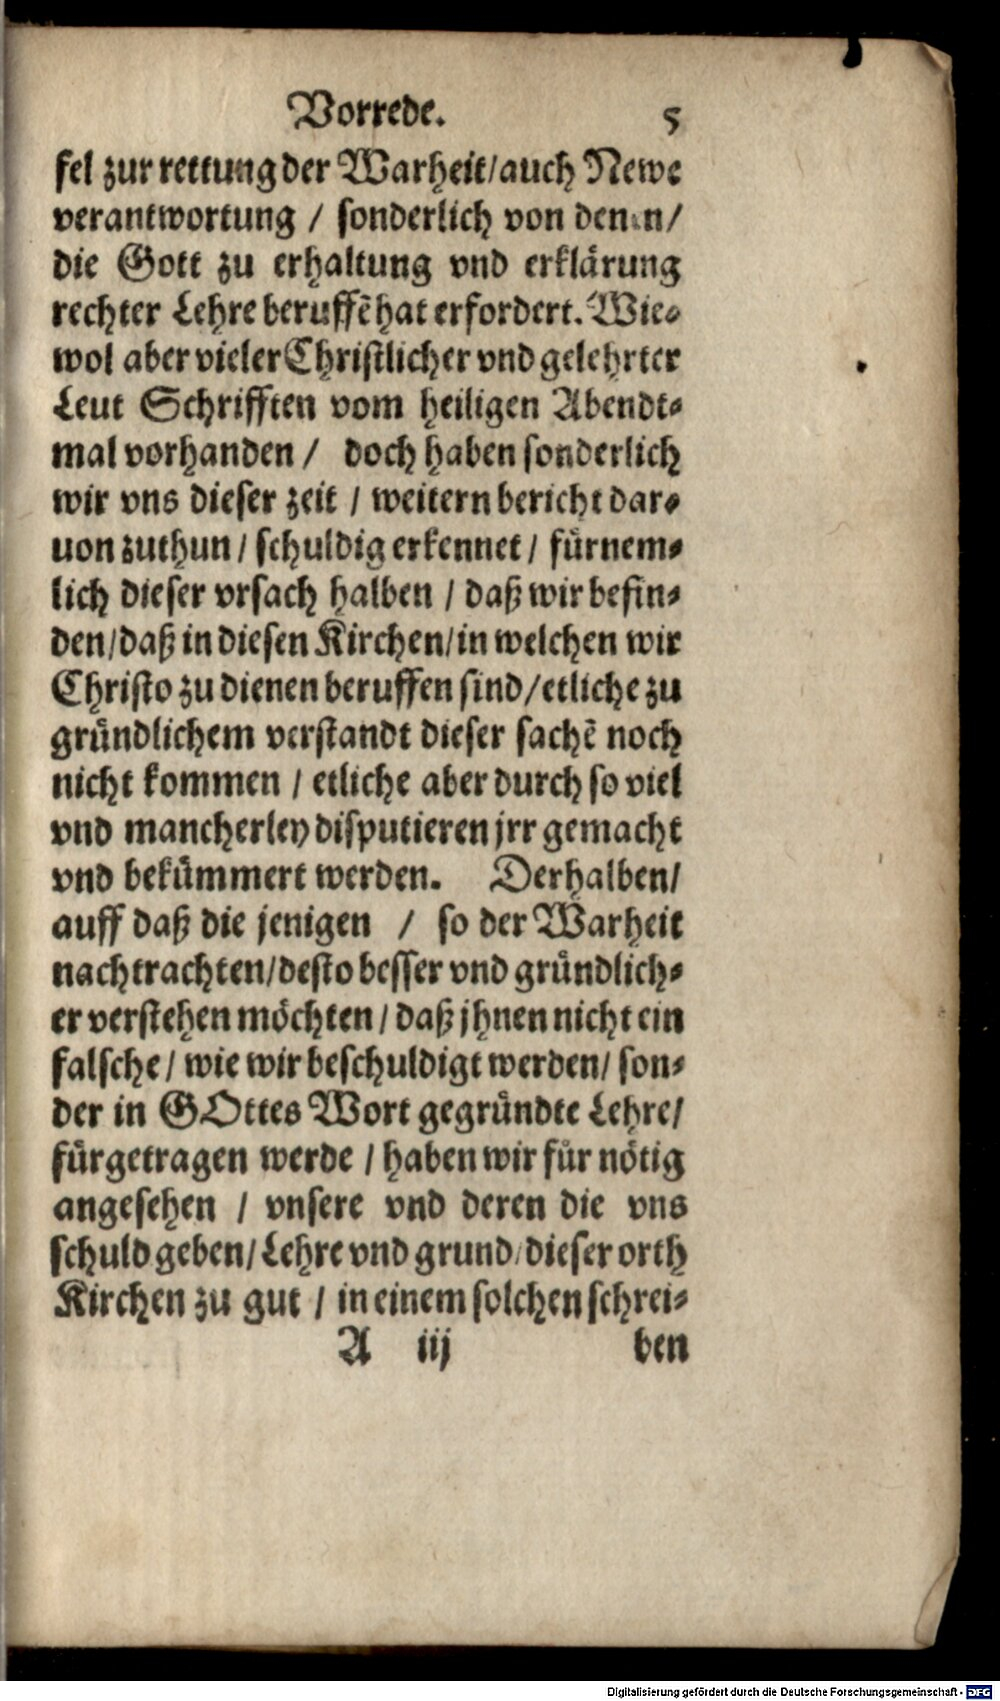 Vorrede. 5
fel zur rettung der Warheit/auch Newe
verantwortung / sonderlich von denen/
die Gott zu erhaltung vnd erklärung
rechter Lehre beruffẽ hat erfordert. Wie-
wol aber vieler Christlicher vnd gelehrter
Leut Schrifften vom heiligen Abendt-
mal vorhanden / doch haben sonderlich
wir vns dieser zeit / weitern bericht dar-
uon zuthun / schuldig erkennet / fürnem-
lich dieser vrsach halben / daß wir befin-
den/daß in diesen Kirchen/in welchen wir
Christo zu dienen beruffen sind/etliche zu
gründlichem verstandt dieser sachẽ noch
nicht kommen / etliche aber durch so viel
vnd mancherley disputieren jrr gemacht
vnd bekümmert werden. Derhalben/
auff daß die jenigen / so der Warheit
nachtrachten/desto besser vnd gründlich-
er verstehen möchten / daß jhnen nicht ein
falsche / wie wir beschuldigt werden/ son-
der in GOttes Wort gegründte Lehre/
fürgetragen werde / haben wir für nötig
angesehen / vnsere vnd deren die vns
schuld geben/Lehre vnd grund/dieser orth
Kirchen zu gut / in einem solchen schrei-
A iij ben
Digitalisierung gefördert durch die Deutsche Forschungsgemeinschaft - DFG